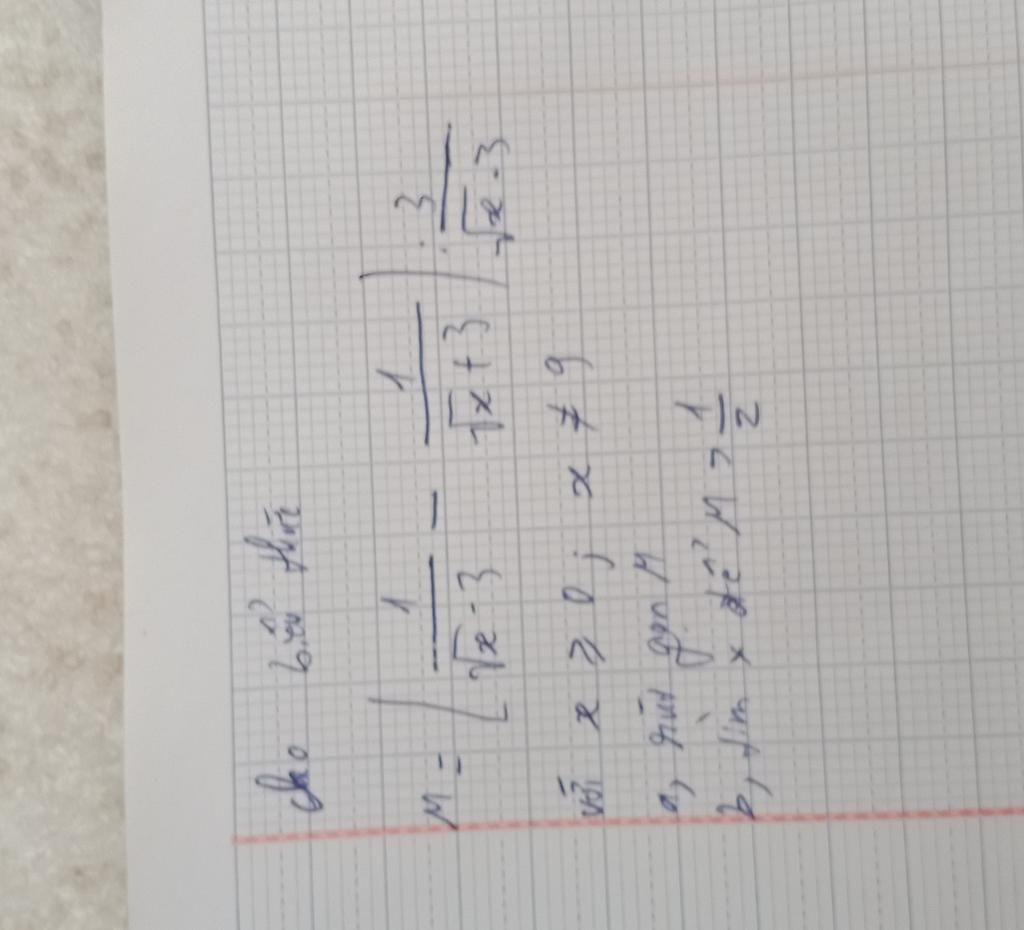 Cho biểu thức
M = ( 1/(√x - 3) - 1/(√x + 3) ) : 3/(√x - 3)
với x ≥ 0 ; x ≠ 9
a, rút gọn M
b, tìm x để M > 1/2